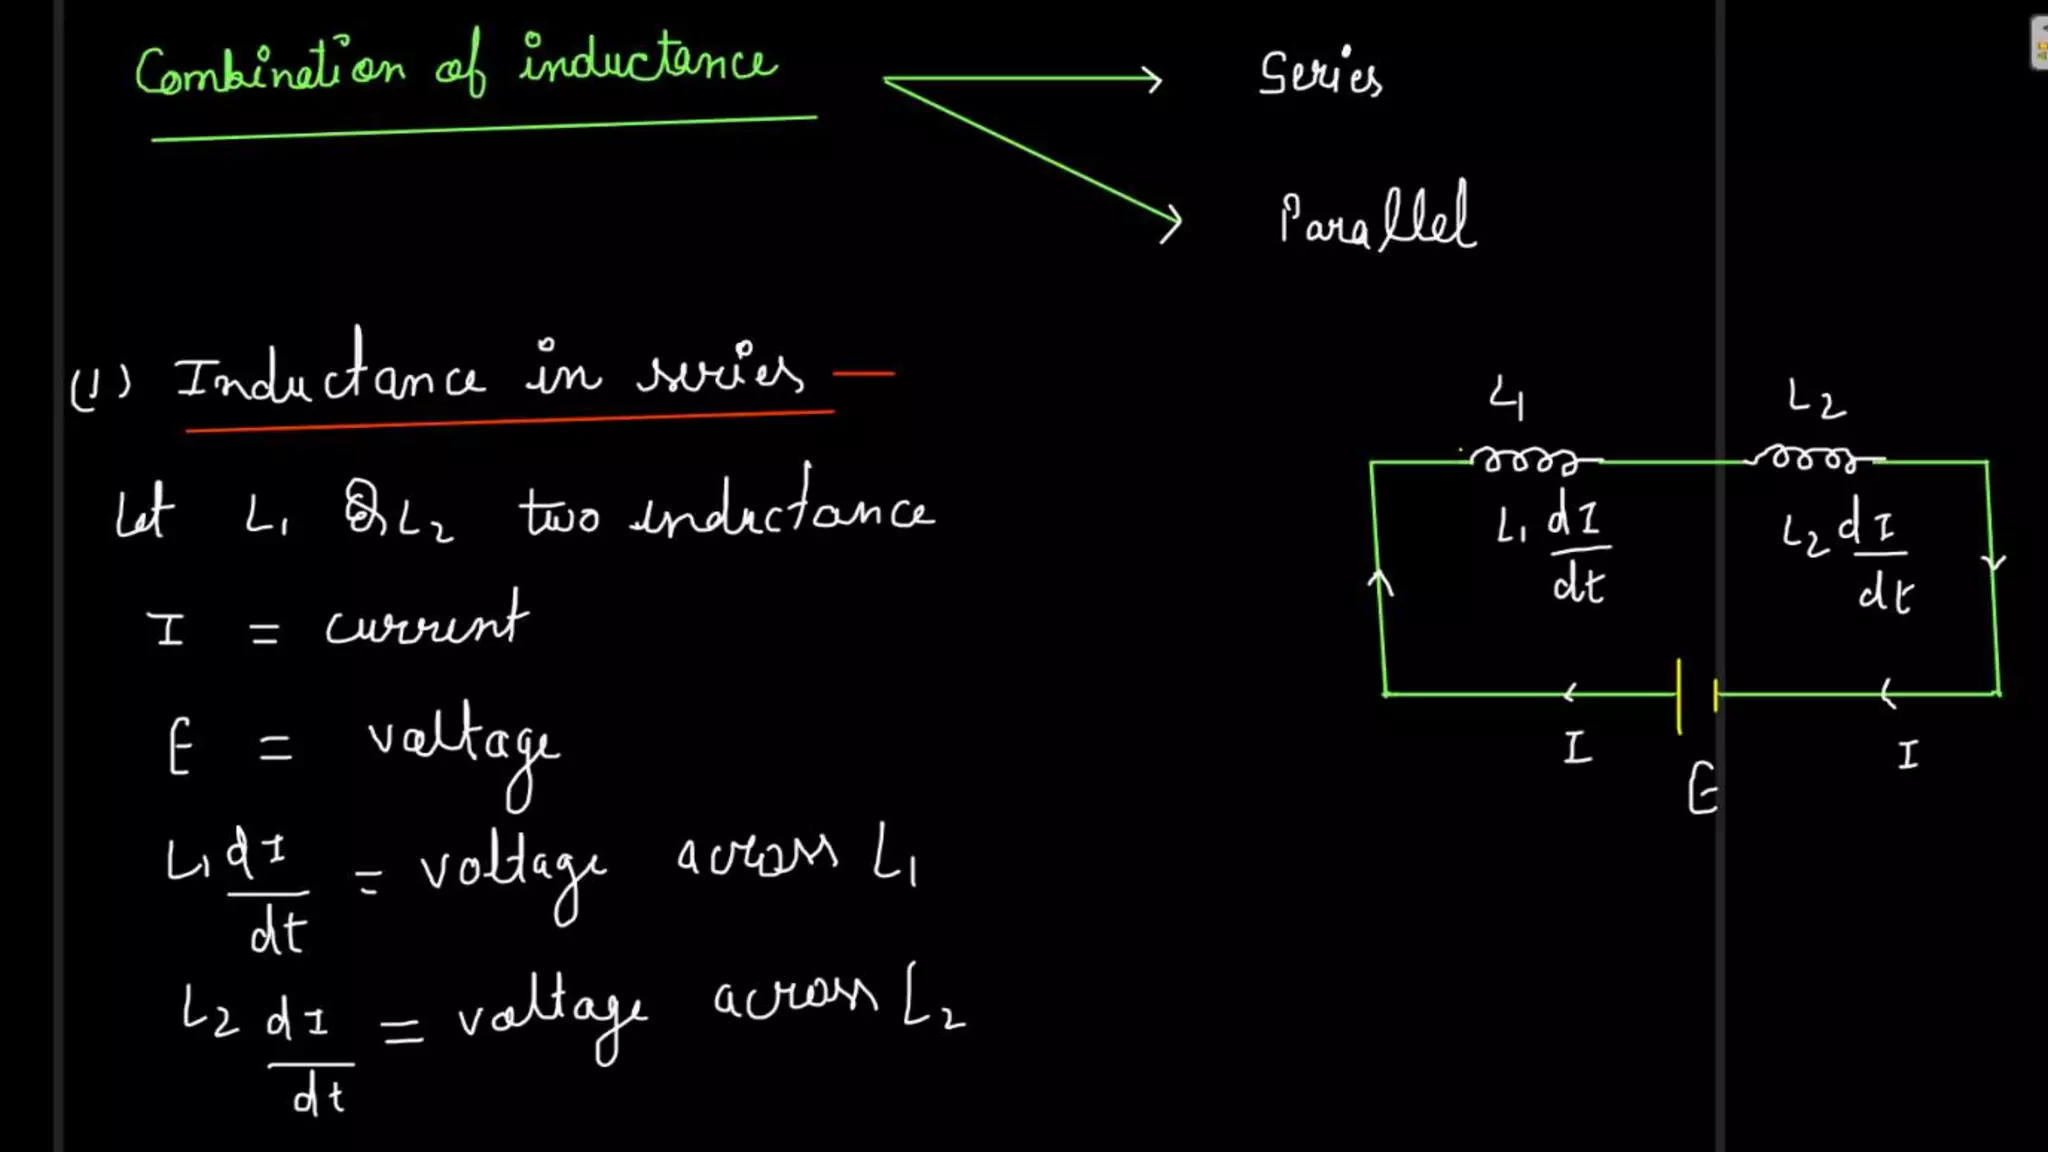 Combination of inductance
Series
Parallel
(1) Inductance in series —
Let L₁ & L₂ two inductance
I = current
E = voltage
L₁ dI/dt = voltage across L₁
L₂ dI/dt = voltage across L₂
L₁ L₂
L₁ dI/dt L₂ dI/dt
I E I